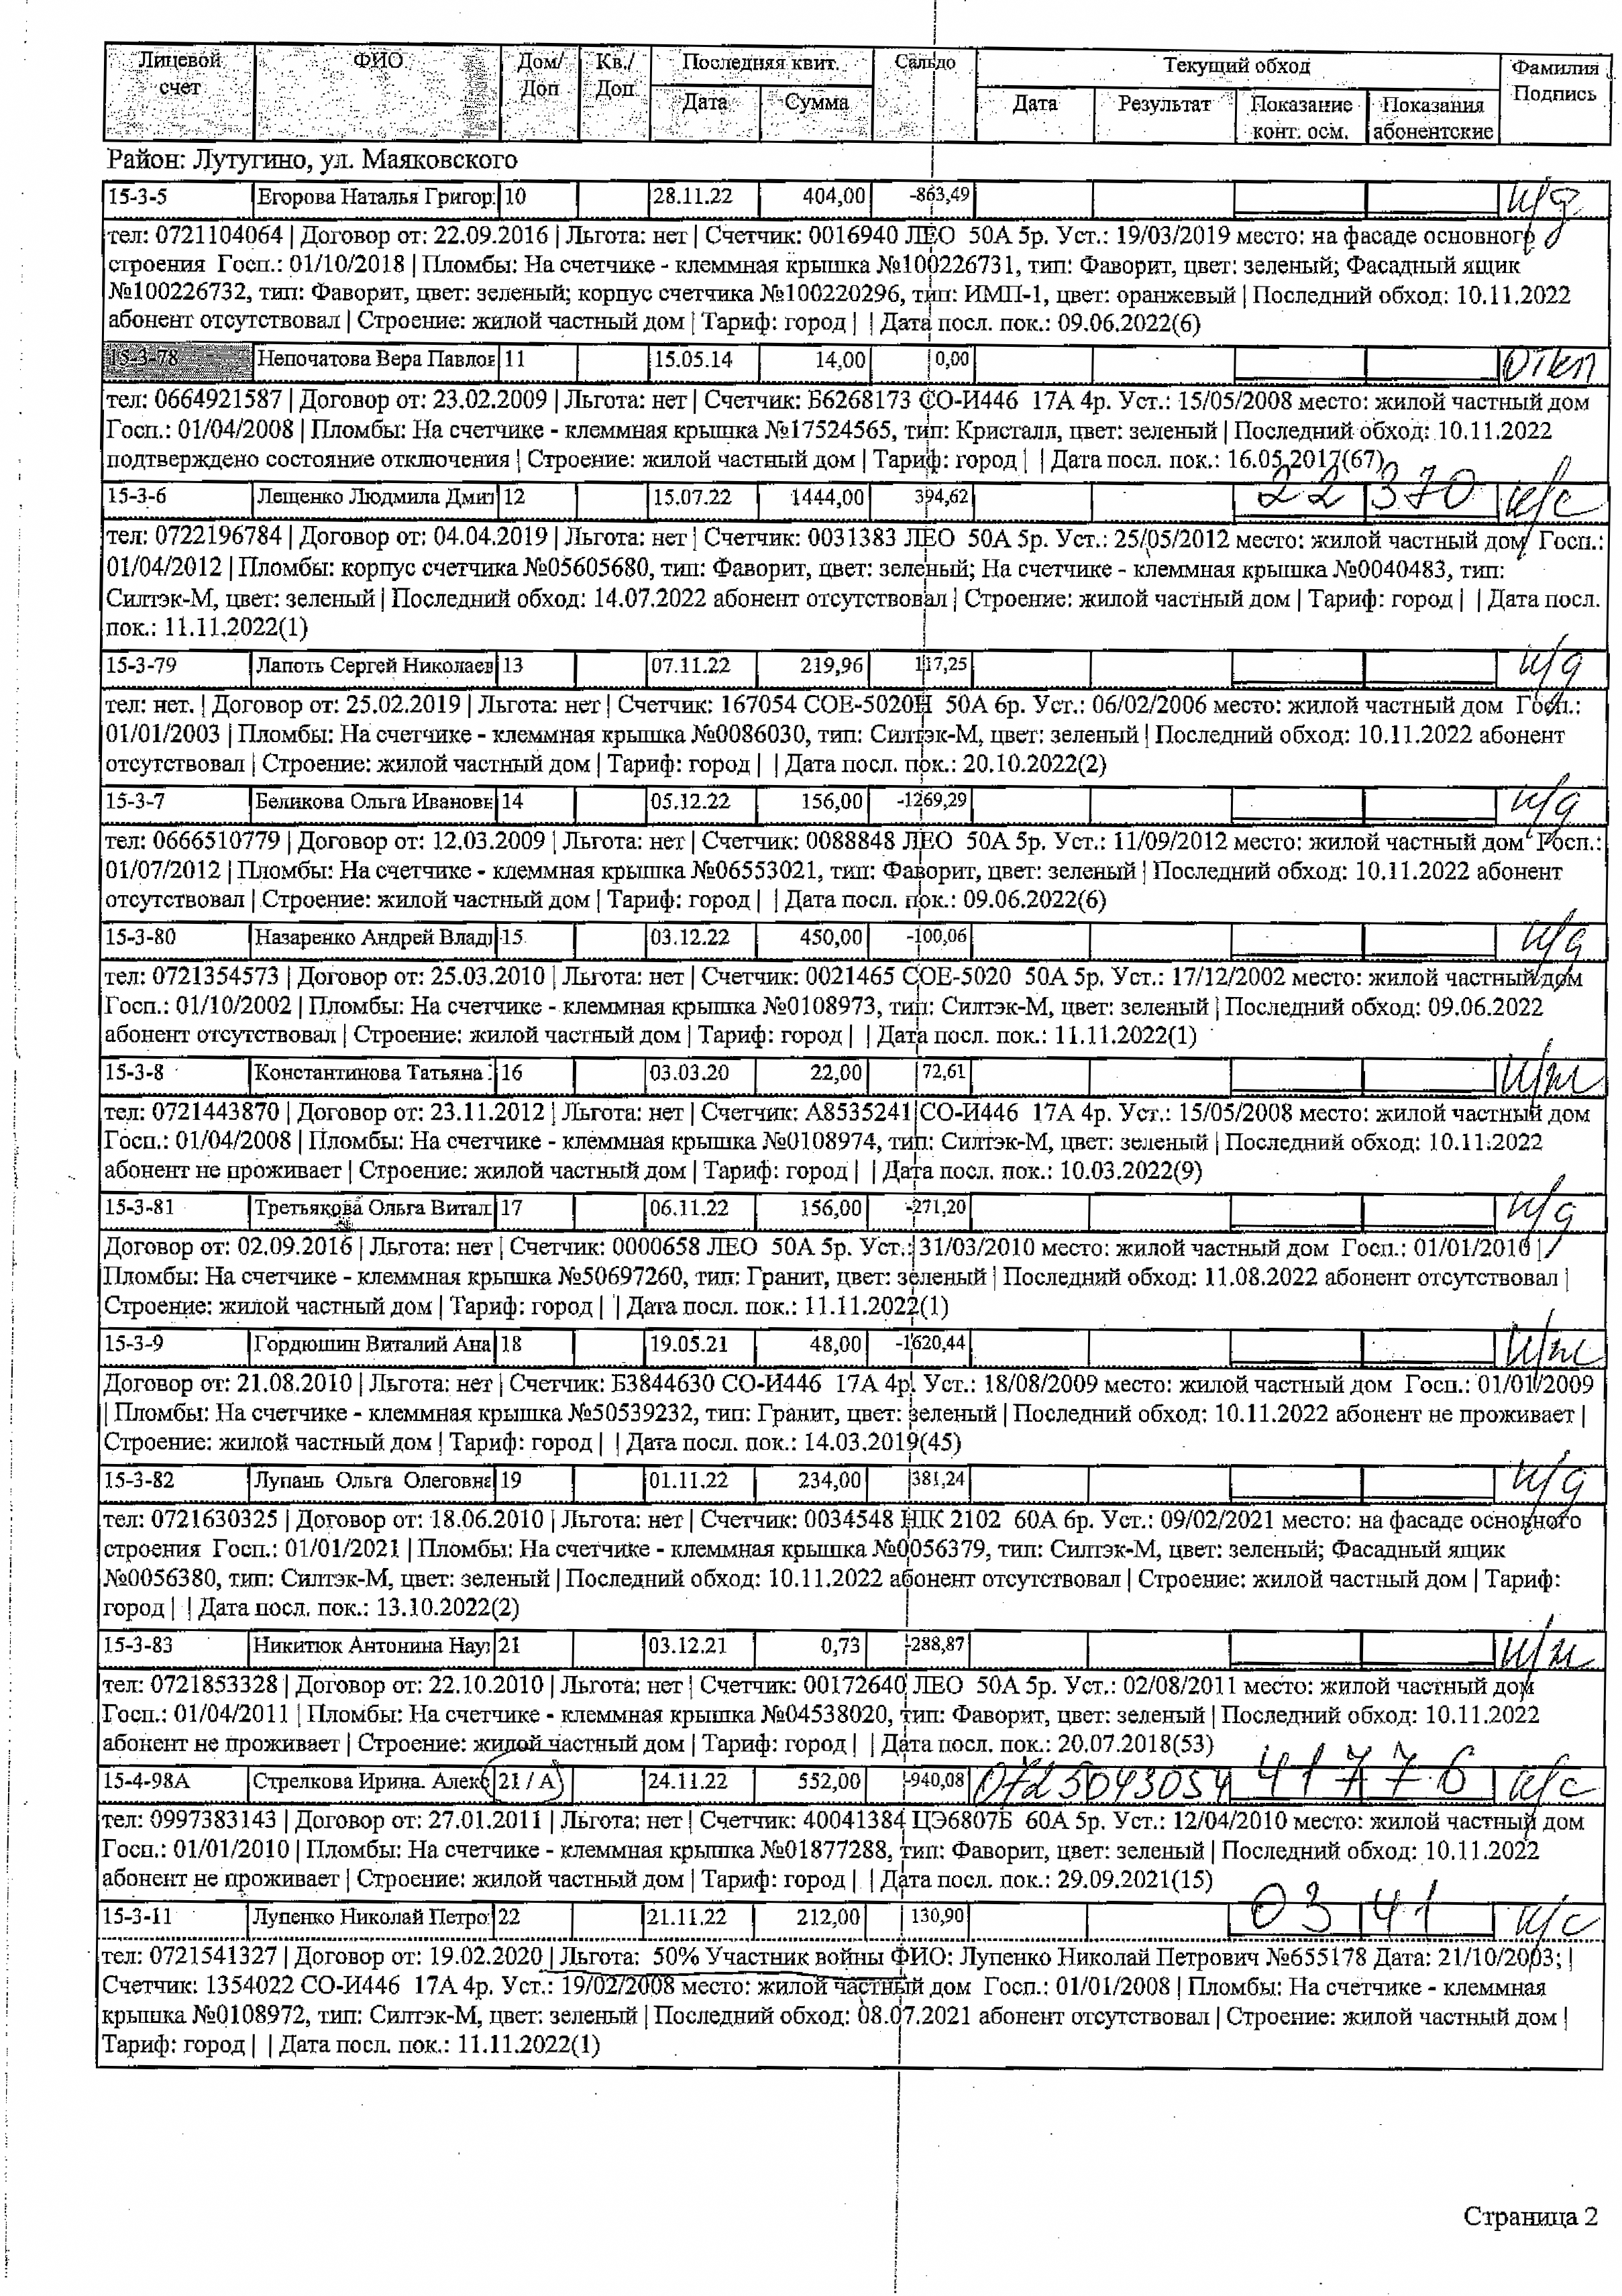 Лицевой счет ФИО Дом/ Доп Кв./ Доп Последняя квит. Дата Сумма Сальдо Текущий обход Дата Результат Показание конт. осм. Показания абонентские Фамилия Подпись
Район: Лутугино, ул. Маяковского
15-3-5 Егорова Наталья Григор 10 28.11.22 404,00 -863,49 н/д
тел: 0721104064 | Договор от: 22.09.2016 | Льгота: нет | Счетчик: 0016940 ЛЕО 50А 5р. Уст.: 19/03/2019 место: на фасаде основного
строения Госп.: 01/10/2018 | Пломбы: На счетчике - клеммная крышка №100226731, тип: Фаворит, цвет: зеленый; Фасадный ящик
№100226732, тип: Фаворит, цвет: зеленый; корпус счетчика №100220296, тип: ИМП-1, цвет: оранжевый | Последний обход: 10.11.2022
абонент отсутствовал | Строение: жилой частный дом | Тариф: город | | Дата посл. пок.: 09.06.2022(6)
15-3-78 Непочатова Вера Павлов 11 15.05.14 14,00 0,00 откл
тел: 0664921587 | Договор от: 23.02.2009 | Льгота: нет | Счетчик: Б6268173 СО-И446 17А 4р. Уст.: 15/05/2008 место: жилой частный дом
Госп.: 01/04/2008 | Пломбы: На счетчике - клеммная крышка №17524565, тип: Кристалл, цвет: зеленый | Последний обход: 10.11.2022
подтверждено состояние отключения | Строение: жилой частный дом | Тариф: город | | Дата посл. пок.: 16.05.2017(67)
15-3-6 Лещенко Людмила Дмит 12 15.07.22 1444,00 394,62 22370 и/с
тел: 0722196784 | Договор от: 04.04.2019 | Льгота: нет | Счетчик: 0031383 ЛЕО 50А 5р. Уст.: 25/05/2012 место: жилой частный дом Госп.:
01/04/2012 | Пломбы: корпус счетчика №05605680, тип: Фаворит, цвет: зеленый; На счетчике - клеммная крышка №0040483, тип:
Силтэк-М, цвет: зеленый | Последний обход: 14.07.2022 абонент отсутствовал | Строение: жилой частный дом | Тариф: город | | Дата посл.
пок.: 11.11.2022(1)
15-3-79 Лапоть Сергей Николаев 13 07.11.22 219,96 117,25 н/д
тел: нет. | Договор от: 25.02.2019 | Льгота: нет | Счетчик: 167054 СОЕ-5020Н 50А 6р. Уст.: 06/02/2006 место: жилой частный дом Госп.:
01/01/2003 | Пломбы: На счетчике - клеммная крышка №0086030, тип: Силтэк-М, цвет: зеленый | Последний обход: 10.11.2022 абонент
отсутствовал | Строение: жилой частный дом | Тариф: город | | Дата посл. пок.: 20.10.2022(2)
15-3-7 Беликова Ольга Ивановн 14 05.12.22 156,00 -1269,29 н/д
тел: 0666510779 | Договор от: 12.03.2009 | Льгота: нет | Счетчик: 0088848 ЛЕО 50А 5р. Уст.: 11/09/2012 место: жилой частный дом Госп.:
01/07/2012 | Пломбы: На счетчике - клеммная крышка №06553021, тип: Фаворит, цвет: зеленый | Последний обход: 10.11.2022 абонент
отсутствовал | Строение: жилой частный дом | Тариф: город | | Дата посл. пок.: 09.06.2022(6)
15-3-80 Назаренко Андрей Влади 15 03.12.22 450,00 -100,06 н/д
тел: 0721354573 | Договор от: 25.03.2010 | Льгота: нет | Счетчик: 0021465 СОЕ-5020 50А 5р. Уст.: 17/12/2002 место: жилой частный дом
Госп.: 01/10/2002 | Пломбы: На счетчике - клеммная крышка №0108973, тип: Силтэк-М, цвет: зеленый | Последний обход: 09.06.2022
абонент отсутствовал | Строение: жилой частный дом | Тариф: город | | Дата посл. пок.: 11.11.2022(1)
15-3-8 Константинова Татьяна 16 03.03.20 22,00 72,61 н/ж
тел: 0721443870 | Договор от: 23.11.2012 | Льгота: нет | Счетчик: А8535241 СО-И446 17А 4р. Уст.: 15/05/2008 место: жилой частный дом
Госп.: 01/04/2008 | Пломбы: На счетчике - клеммная крышка №0108974, тип: Силтэк-М, цвет: зеленый | Последний обход: 10.11.2022
абонент не проживает | Строение: жилой частный дом | Тариф: город | | Дата посл. пок.: 10.03.2022(9)
15-3-81 Третьякова Ольга Витал 17 06.11.22 156,00 -271,20 н/д
Договор от: 02.09.2016 | Льгота: нет | Счетчик: 0000658 ЛЕО 50А 5р. Уст.: 31/03/2010 место: жилой частный дом Госп.: 01/01/2010 |
Пломбы: На счетчике - клеммная крышка №50697260, тип: Гранит, цвет: зеленый | Последний обход: 11.08.2022 абонент отсутствовал |
Строение: жилой частный дом | Тариф: город | | Дата посл. пок.: 11.11.2022(1)
15-3-9 Гордюшин Виталий Ана 18 19.05.21 48,00 -1620,44 н/ж
Договор от: 21.08.2010 | Льгота: нет | Счетчик: Б3844630 СО-И446 17А 4р. Уст.: 18/08/2009 место: жилой частный дом Госп.: 01/01/2009
| Пломбы: На счетчике - клеммная крышка №50539232, тип: Гранит, цвет: зеленый | Последний обход: 10.11.2022 абонент не проживает |
Строение: жилой частный дом | Тариф: город | | Дата посл. пок.: 14.03.2019(45)
15-3-82 Лупань Ольга Олеговна 19 01.11.22 234,00 381,24 н/д
тел: 0721630325 | Договор от: 18.06.2010 | Льгота: нет | Счетчик: 0034548 НІК 2102 60А 6р. Уст.: 09/02/2021 место: на фасаде основного
строения Госп.: 01/01/2021 | Пломбы: На счетчике - клеммная крышка №0056379, тип: Силтэк-М, цвет: зеленый; Фасадный ящик
№0056380, тип: Силтэк-М, цвет: зеленый | Последний обход: 10.11.2022 абонент отсутствовал | Строение: жилой частный дом | Тариф:
город | | Дата посл. пок.: 13.10.2022(2)
15-3-83 Никитюк Антонина Нау 21 03.12.21 0,73 -288,87 н/ж
тел: 0721853328 | Договор от: 22.10.2010 | Льгота: нет | Счетчик: 00172640 ЛЕО 50А 5р. Уст.: 02/08/2011 место: жилой частный дом
Госп.: 01/04/2011 | Пломбы: На счетчике - клеммная крышка №04538020, тип: Фаворит, цвет: зеленый | Последний обход: 10.11.2022
абонент не проживает | Строение: жилой частный дом | Тариф: город | | Дата посл. пок.: 20.07.2018(53)
15-4-98А Стрелкова Ирина. Алекс 21 / А 24.11.22 552,00 -940,08 0725043054 41776 и/с
тел: 0997383143 | Договор от: 27.01.2011 | Льгота: нет | Счетчик: 40041384 ЦЭ6807Б 60А 5р. Уст.: 12/04/2010 место: жилой частный дом
Госп.: 01/01/2010 | Пломбы: На счетчике - клеммная крышка №01877288, тип: Фаворит, цвет: зеленый | Последний обход: 10.11.2022
абонент не проживает | Строение: жилой частный дом | Тариф: город | | Дата посл. пок.: 29.09.2021(15)
15-3-11 Лупенко Николай Петро 22 21.11.22 212,00 130,90 0341 и/с
тел: 0721541327 | Договор от: 19.02.2020 | Льгота: 50% Участник войны ФИО: Лупенко Николай Петрович №655178 Дата: 21/10/2003; |
Счетчик: 1354022 СО-И446 17А 4р. Уст.: 19/02/2008 место: жилой частный дом Госп.: 01/01/2008 | Пломбы: На счетчике - клеммная
крышка №0108972, тип: Силтэк-М, цвет: зеленый | Последний обход: 08.07.2021 абонент отсутствовал | Строение: жилой частный дом |
Тариф: город | | Дата посл. пок.: 11.11.2022(1)
Страница 2